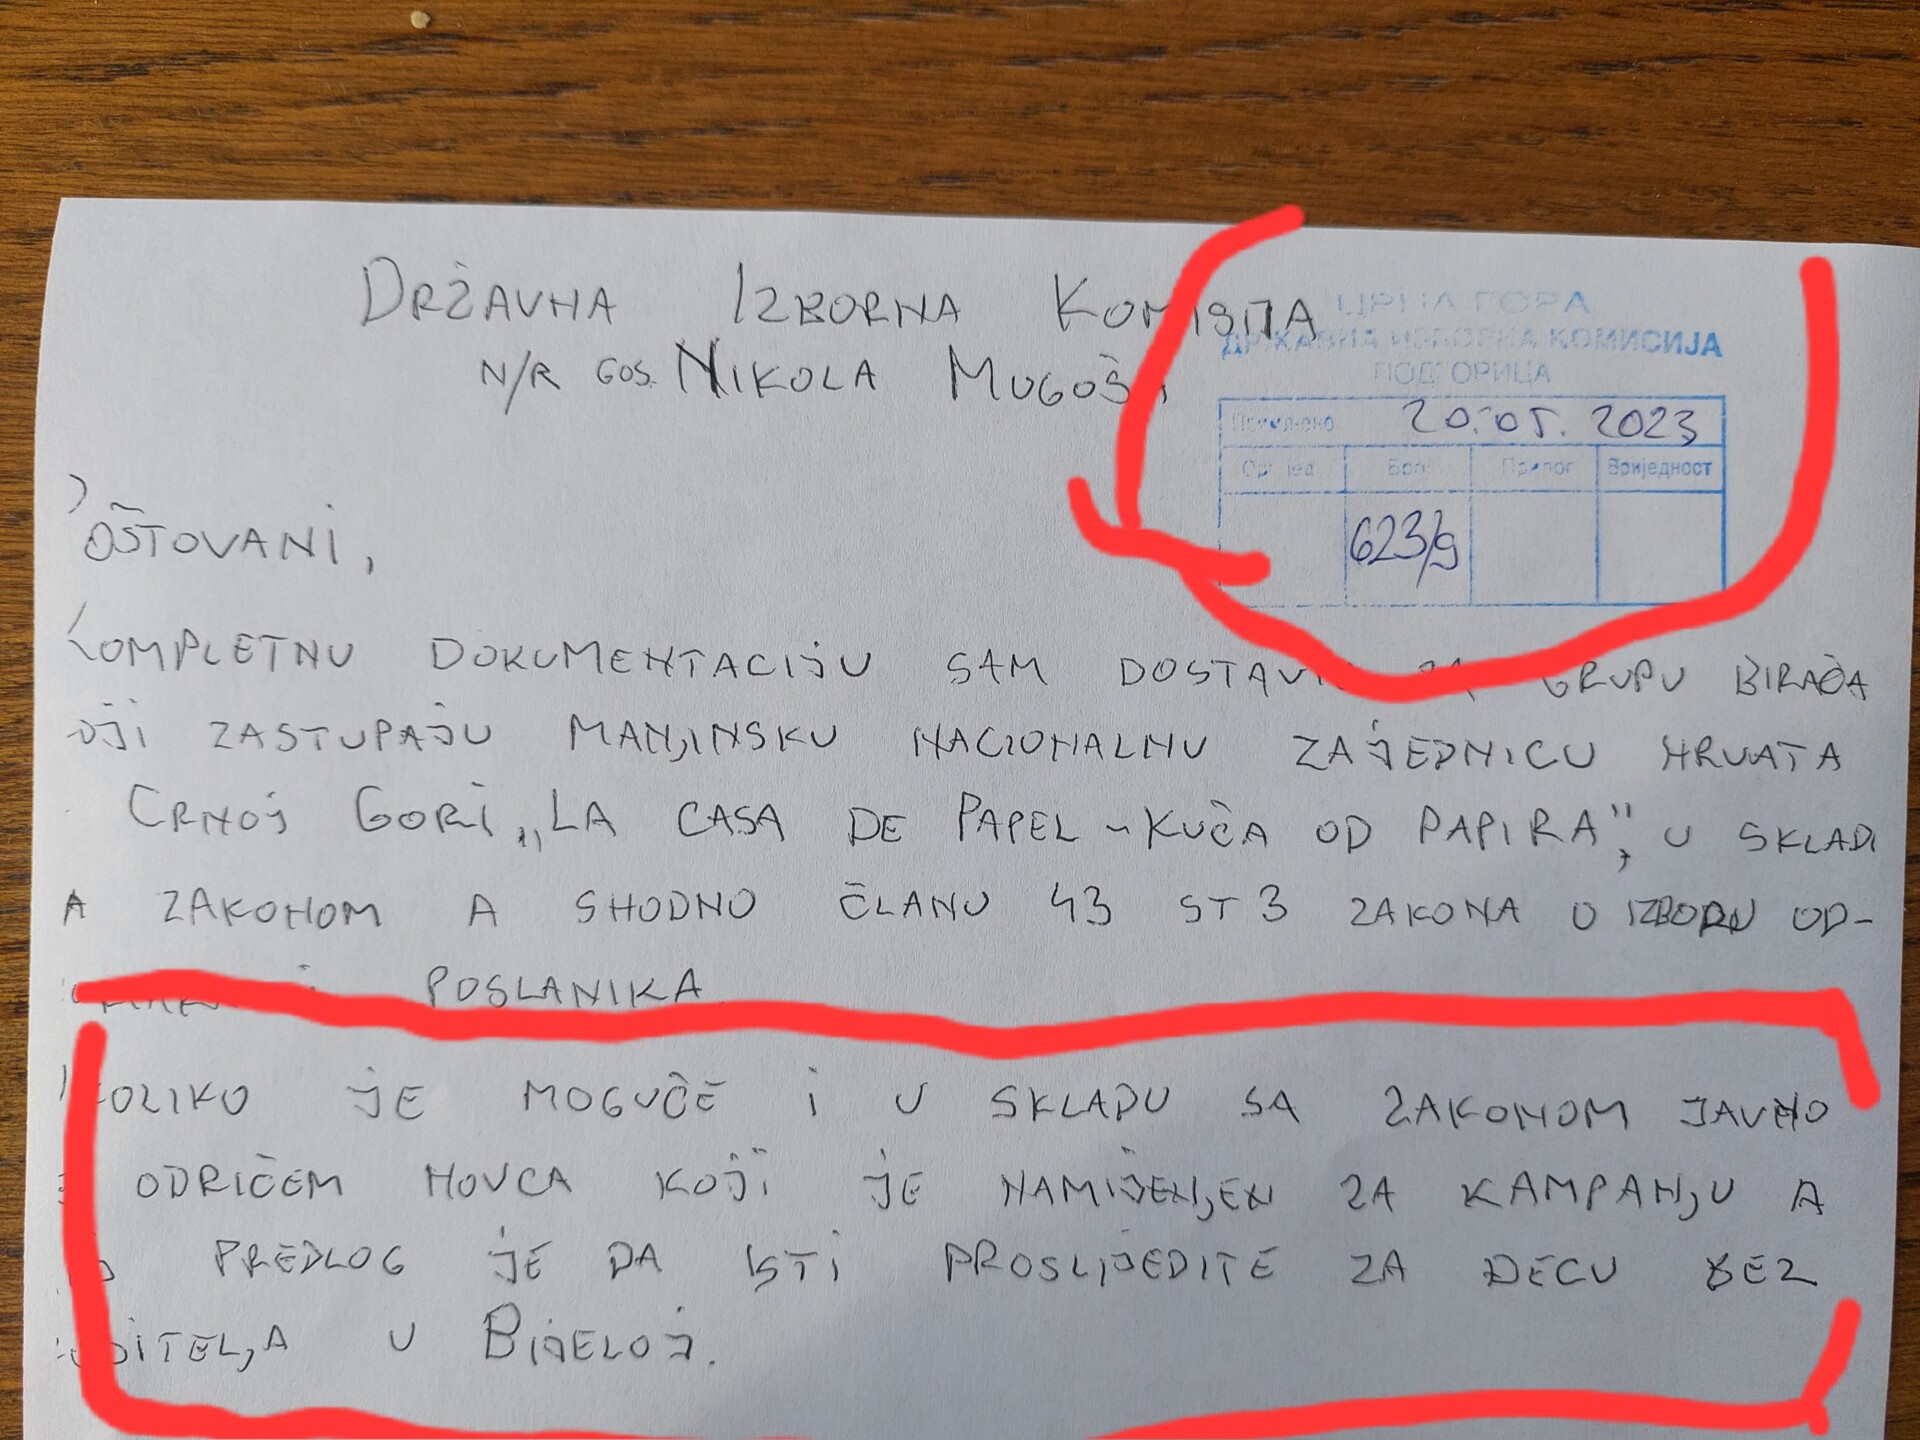 DRŽAVNA IZBORNA KOMISIJA
N/R GOS. NIKOLA MUGOŠA
ЦРНА ГОРА
ДРЖАВНА ИЗБОРНА КОМИСИЈА
ПОДГОРИЦА
Примљено 20.05.2023
Орг јед Број Прилог Вриједност
623/9
POŠTOVANI,
KOMPLETNU DOKUMENTACIJU SAM DOSTAVIO ZA GRUPU BIRAČA
KOJI ZASTUPAJU MANJINSKU NACIONALNU ZAJEDNICU HRVATA
CRNOJ GORI „LA CASA DE PAPEL - KUĆA OD PAPIRA", U SKLADU
A ZAKONOM A SHODNO ČLANU 43 ST 3 ZAKONA O IZBORU OD-
POSLANIKA
UKOLIKO JE MOGUĆE I U SKLADU SA ZAKONOM JAVNO
ODRIČEM NOVCA KOJI JE NAMIJENJEN ZA KAMPANJU A
PREDLOG JE DA ISTI PROSLIJEDITE ZA DECU BEZ
RODITELJA U BIJELOJ.